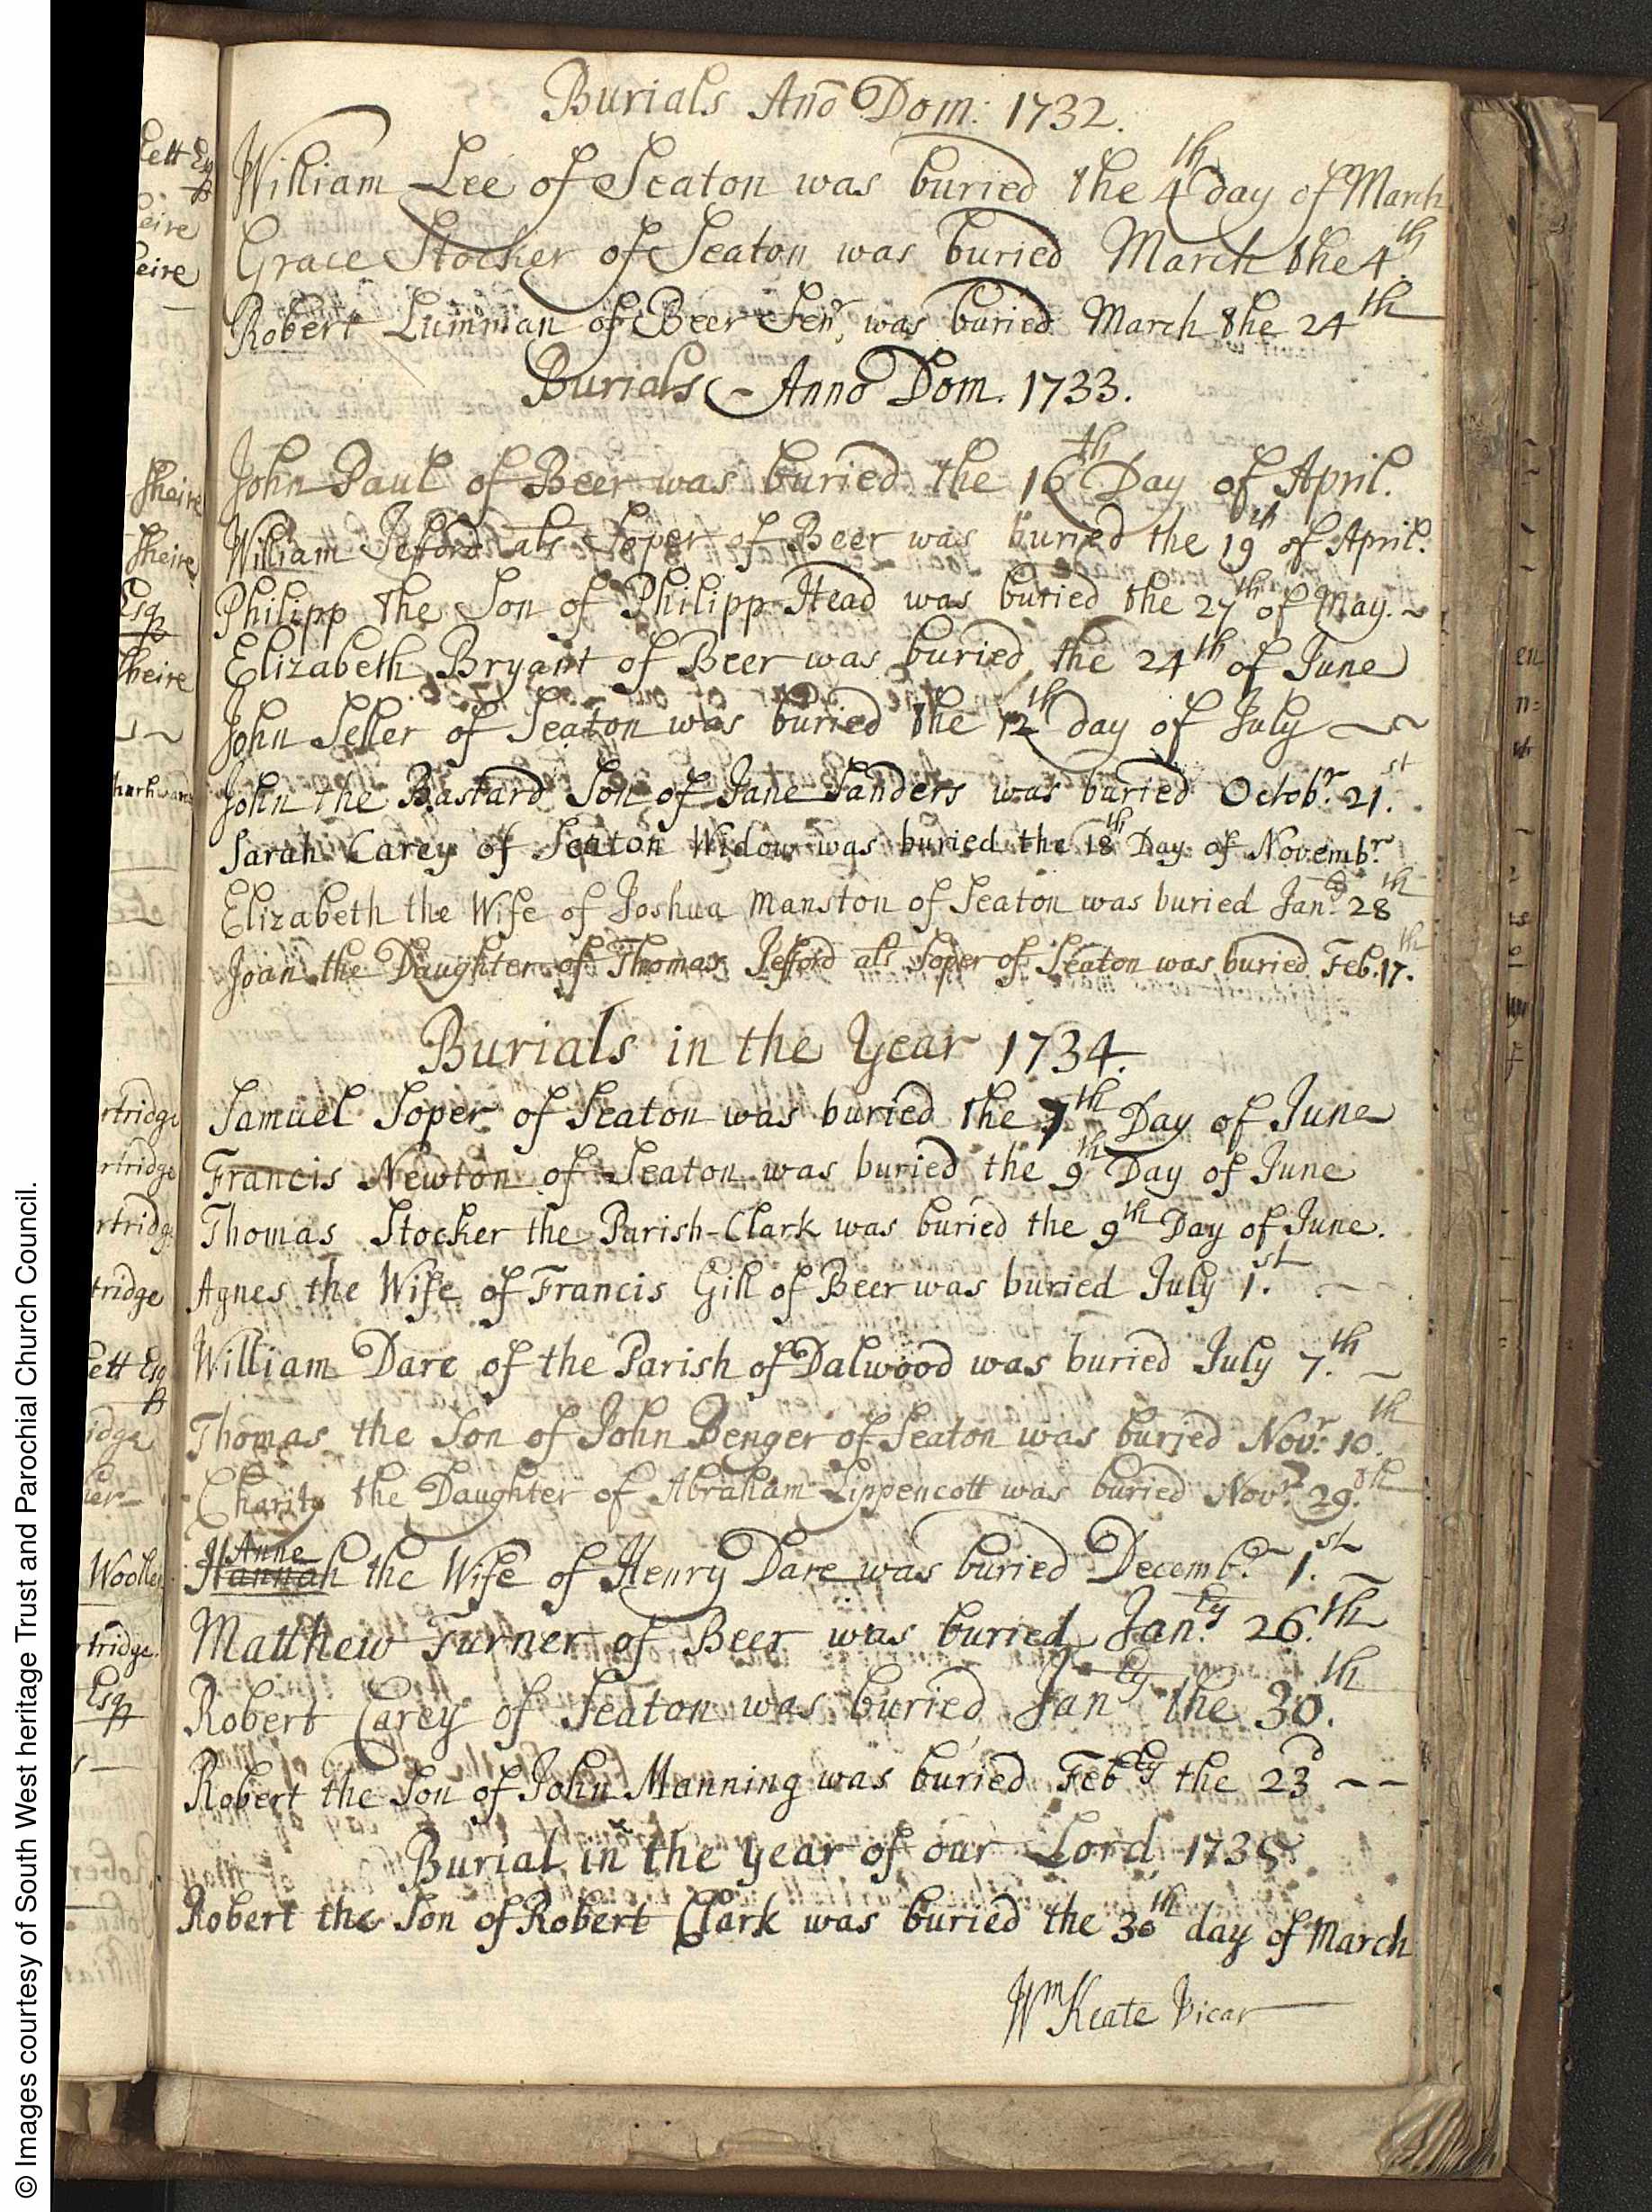 Burials Año Dom: 1732.
William Lee of Seaton was buried the 4th day of March
Grace Stocker of Seaton was buried March the 4th.
Robert Lumman of Beer Senr, was buried March the 24th
Burials - Anno Dom. 1733.
John Paul of Beer was buried the 16th Day of April.
William Jefford als Soper of Beer was buried the 19th of April.
Philipp the Son of Philipp Head was buried the 27th of May. ~
Elizabeth Bryant of Beer was buried the 24th of June
John Seller of Seaton was buried the 12th day of July ~~
John the Bastard Son of Jane Sanders was buried Octobr. 21st.
Sarah Carey of Seaton Widow was buried the 18th Day of Novembr.
Elizabeth the Wife of Joshua Manston of Seaton was buried Janry. 28th
Joan the Daughter of Thomas Jefford als Soper of Seaton was buried Feb. 17th.
Burials in the Year 1734.
Samuel Soper of Seaton was buried the 7th Day of June
Francis Newton of Seaton was buried the 9th Day of June
Thomas Stocker the Parish-Clark was buried the 9th Day of June.
Agnes the Wife of Francis Gill of Beer was buried July 1st. ~
William Dare of the Parish of Dalwood was buried July 7th. ~
Thomas the Son of John Benger of Seaton was buried Novr. 10th.
Charity the Daughter of Abraham Lippencott was buried Novr. 29th.
Anne
Hannah the Wife of Henry Dare was buried Decembr. 1st. ~
Matthew Turner of Beer was buried Janry. 26.th
Robert Carey of Seaton was buried Janry the 30th.
Robert the Son of John Manning was buried Febry the 23d --
Burial in the year of our Lord 1735
Robert the Son of Robert Clark was buried the 30th day of March
Wm Keate Vicar
© Images courtesy of South West heritage Trust and Parochial Church Council.